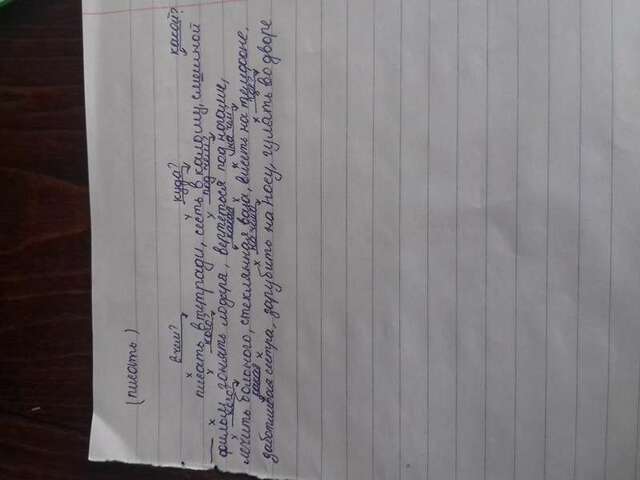 (писать)
в чем? куда? какой?
писать в тетради, сесть в калошу, смешной
кого? под чем?
фильм, гонять лодыря, вертеться под ногами,
кого? какая на чем
лечить больного, стеклянная ваза, висеть на телефоне,
какая на чем где?
заботливая сестра, зарубить на носу, гулять во дворе